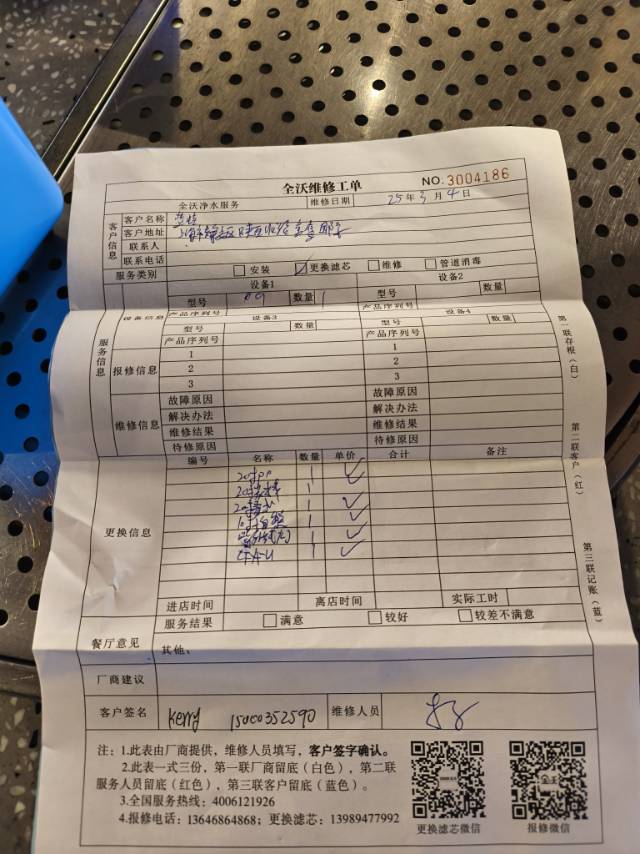 全沃维修工单
NO.3004186
全沃净水服务 维修日期 25年3月4日
客户信息
客户名称
客户地址
联系人
联系电话
服务类别 安装 更换滤芯 维修 管道消毒
服务信息
设备信息
设备1 设备2
型号 数量 1 型号 数量
产品序列号 产品序列号
设备3 设备4
型号 数量 型号 数量
产品序列号 产品序列号
报修信息
1 1
2 2
3 3
维修信息
故障原因 故障原因
解决办法 解决办法
维修结果 维修结果
待修原因 待修原因
更换信息
编号 名称 数量 单价 合计 备注
20寸PP 1
1
1
1
1
1
进店时间 离店时间 实际工时
服务结果 满意 较好 较差不满意
餐厅意见 其他:
厂商建议
客户签名 kerry 15000352590 维修人员
注:1.此表由厂商提供,维修人员填写,客户签字确认。
2.此表一式三份,第一联厂商留底(白色),第二联
服务人员留底(红色),第三联客户留底(蓝色)。
3.全国服务热线:4006121926
4.报修电话:13646864868;更换滤芯:13989477992
更换滤芯微信 报修微信
第一联存根(白)
第二联客户(红)
第三联记账(蓝)